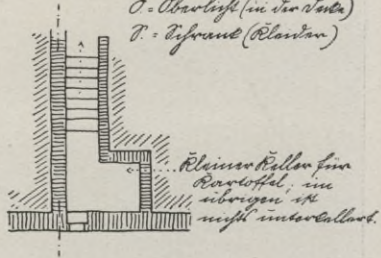 O = Oberlicht (in der Decke)
S. = Schrank (Kleider)
Kleiner Keller für
Kartoffel; im
übrigen ist
nichts unterkellert.